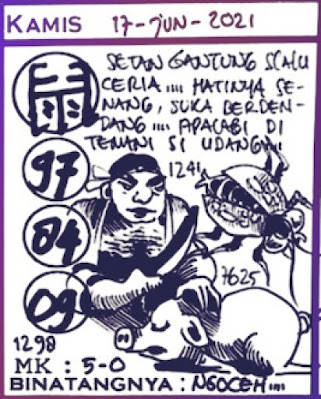 KAMIS 17-JUN-2021
SETAN GANTUNG SLALU
CERIA.... HATINYA SE-
NANG, SUKA BERDEN-
DANG.... APALAGI DI
TEMANI SI UDANG....
97
84
09
1241
7625
1298
MK : 5-0
BINATANGNYA : NGOCEH....